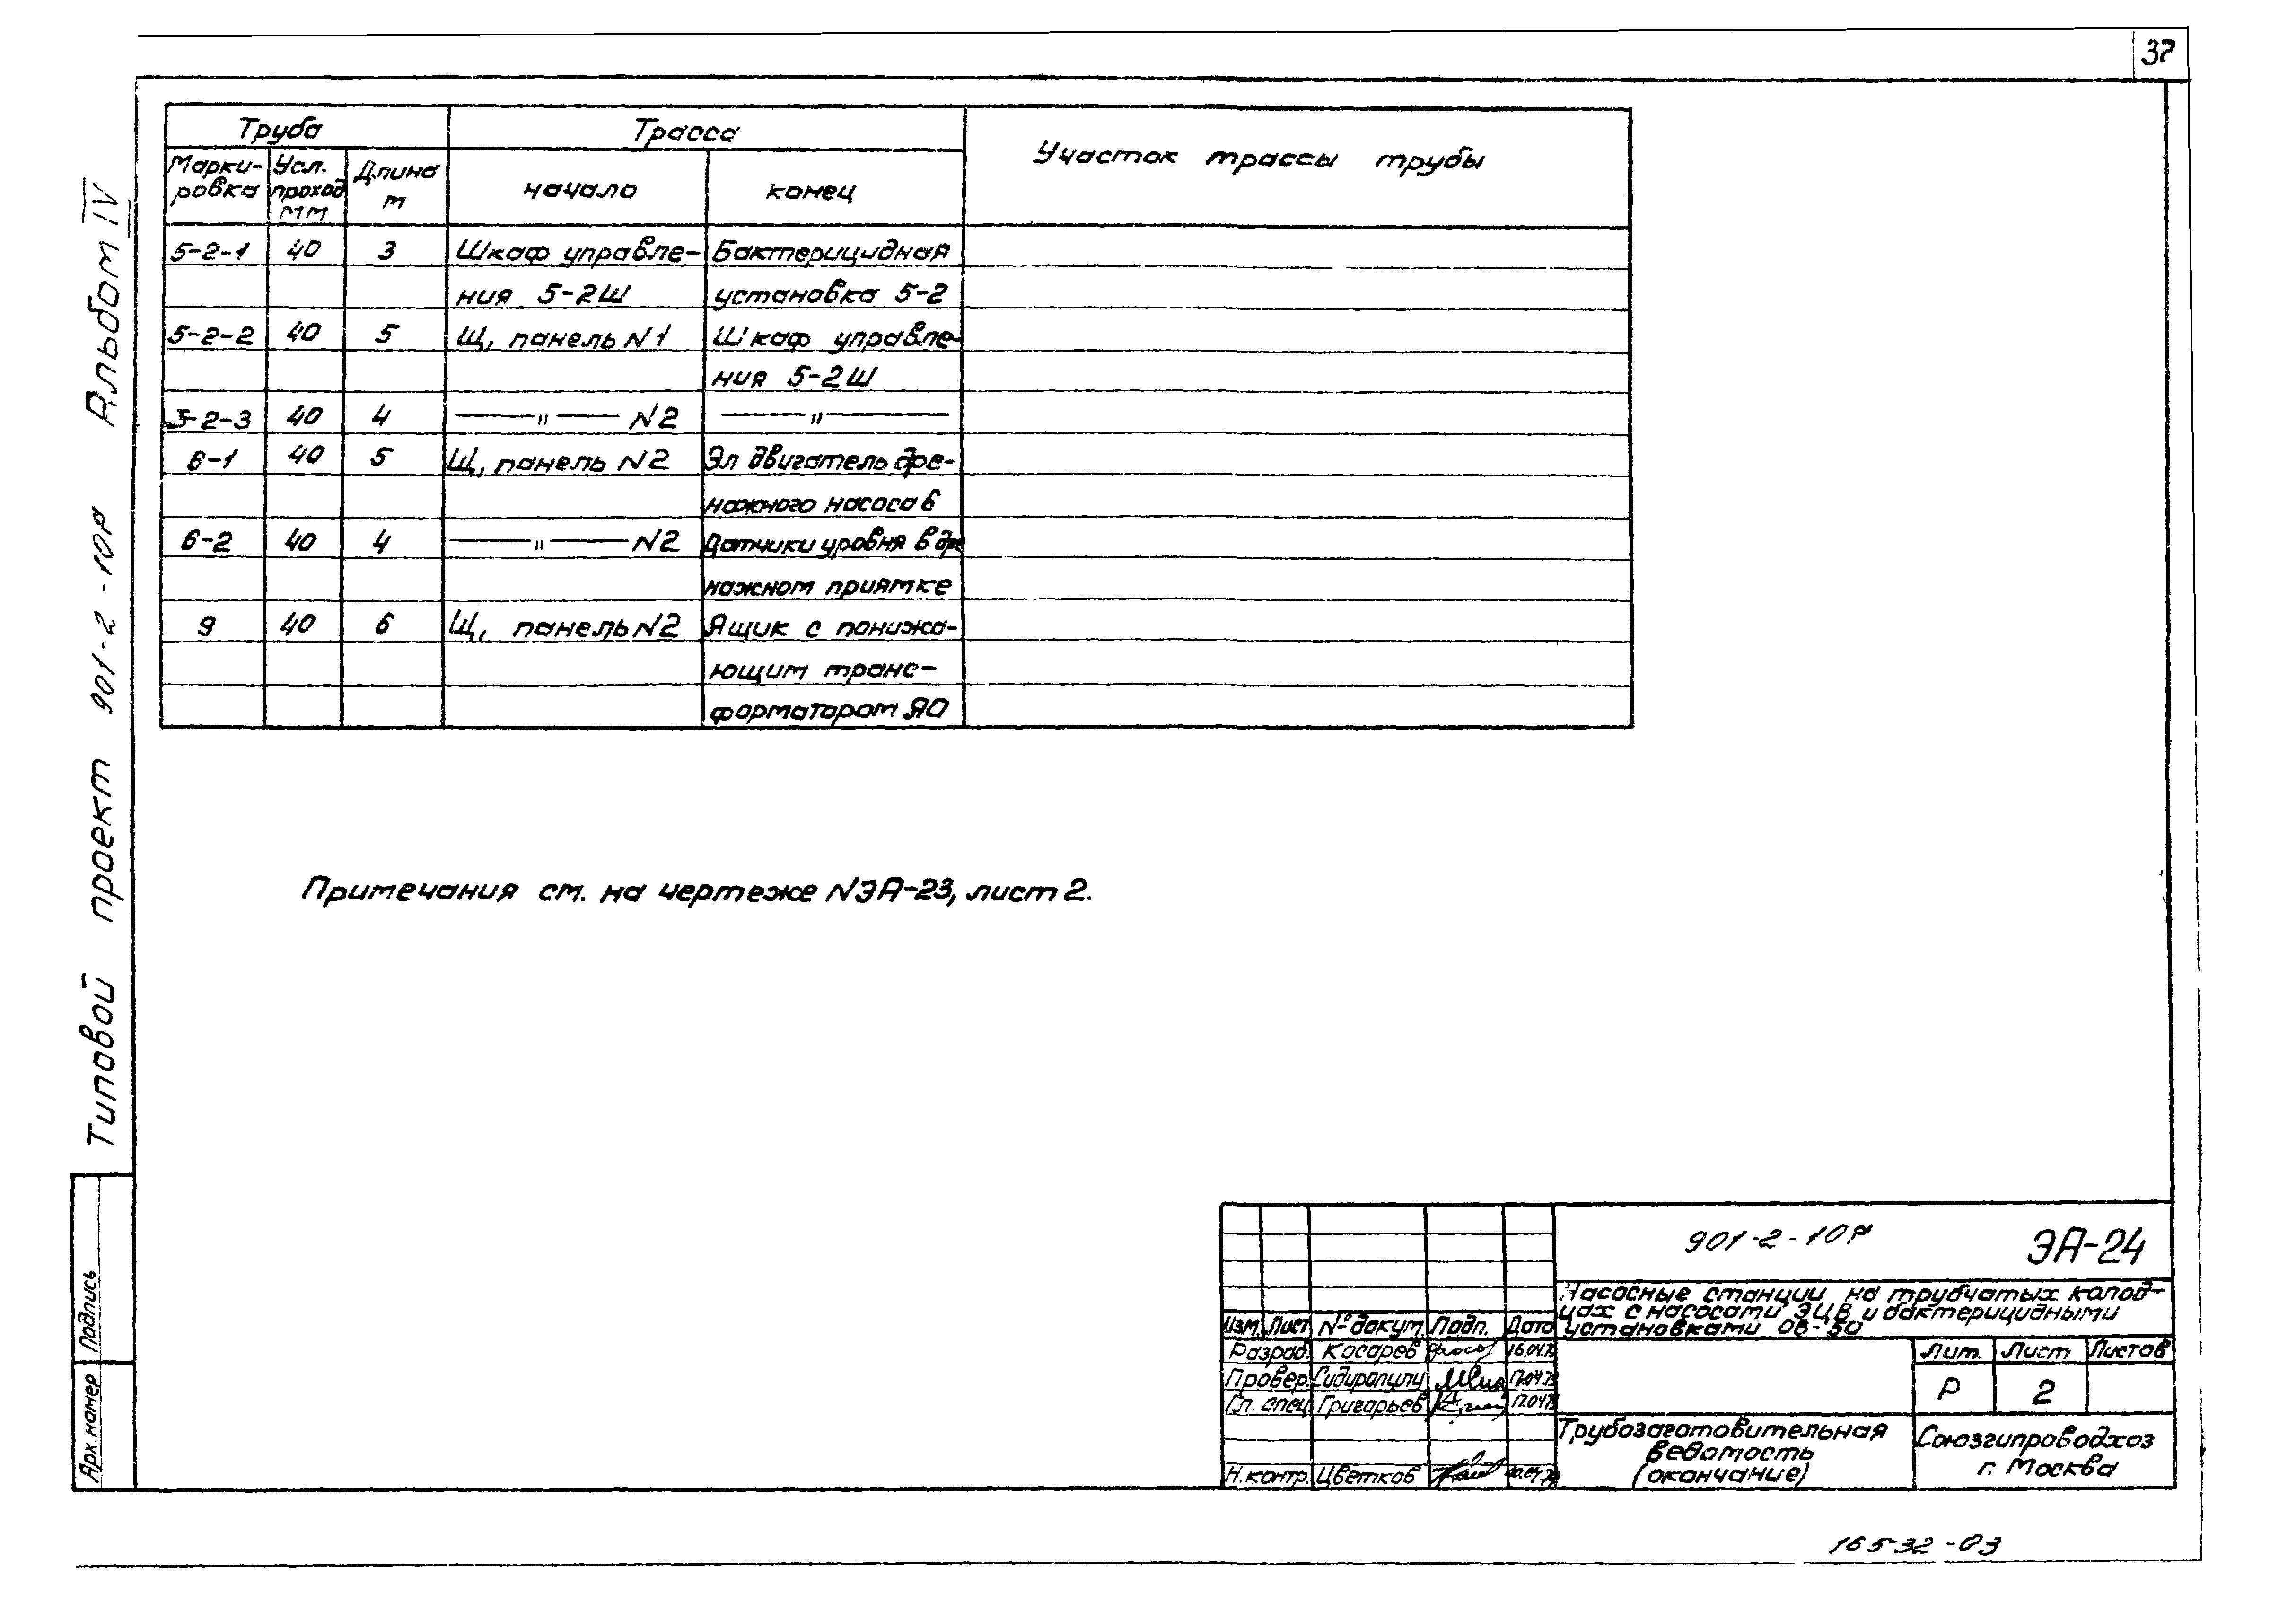 37
Труба Трасса Участок трассы трубы
Марки-ровка Усл. проход мм Длина м начало конец
5-2-1 40 3 Шкаф управле- Бактерицидная
ния 5-2Ш установка 5-2
5-2-2 40 5 Щ, панель N1 Шкаф управле-
ния 5-2Ш
5-2-3 40 4 —"— N2 —"—
6-1 40 5 Щ, панель N2 Эл двигатель дре-
нажного насоса 6
6-2 40 4 —"— N2 Датчики уровня в дре
нажном приямке
9 40 6 Щ, панель N2 Ящик с понижа-
ющим транс-
форматором ЯО
Примечания см. на чертеже NЭА-23, лист 2.
Типовой проект 901-2-10Р Альбом IV
Подпись
Арх. номер
901-2-10Р ЭА-24
Насосные станции на трубчатых колод-
цах с насосами ЭЦВ и бактерицидными
установками ОВ-50
Изм. Лист № докум. Подп. Дата
Разраб. Косарев 16.04.7
Провер. Сидиропуло 17.04.7
Гл. спец. Григорьев 17.04.7
Н. контр. Цветков
Лит. Лист Листов
Р 2
Трубозаготовительная
ведомость
(окончание)
Союзгипроводхоз
г. Москва
16532-03